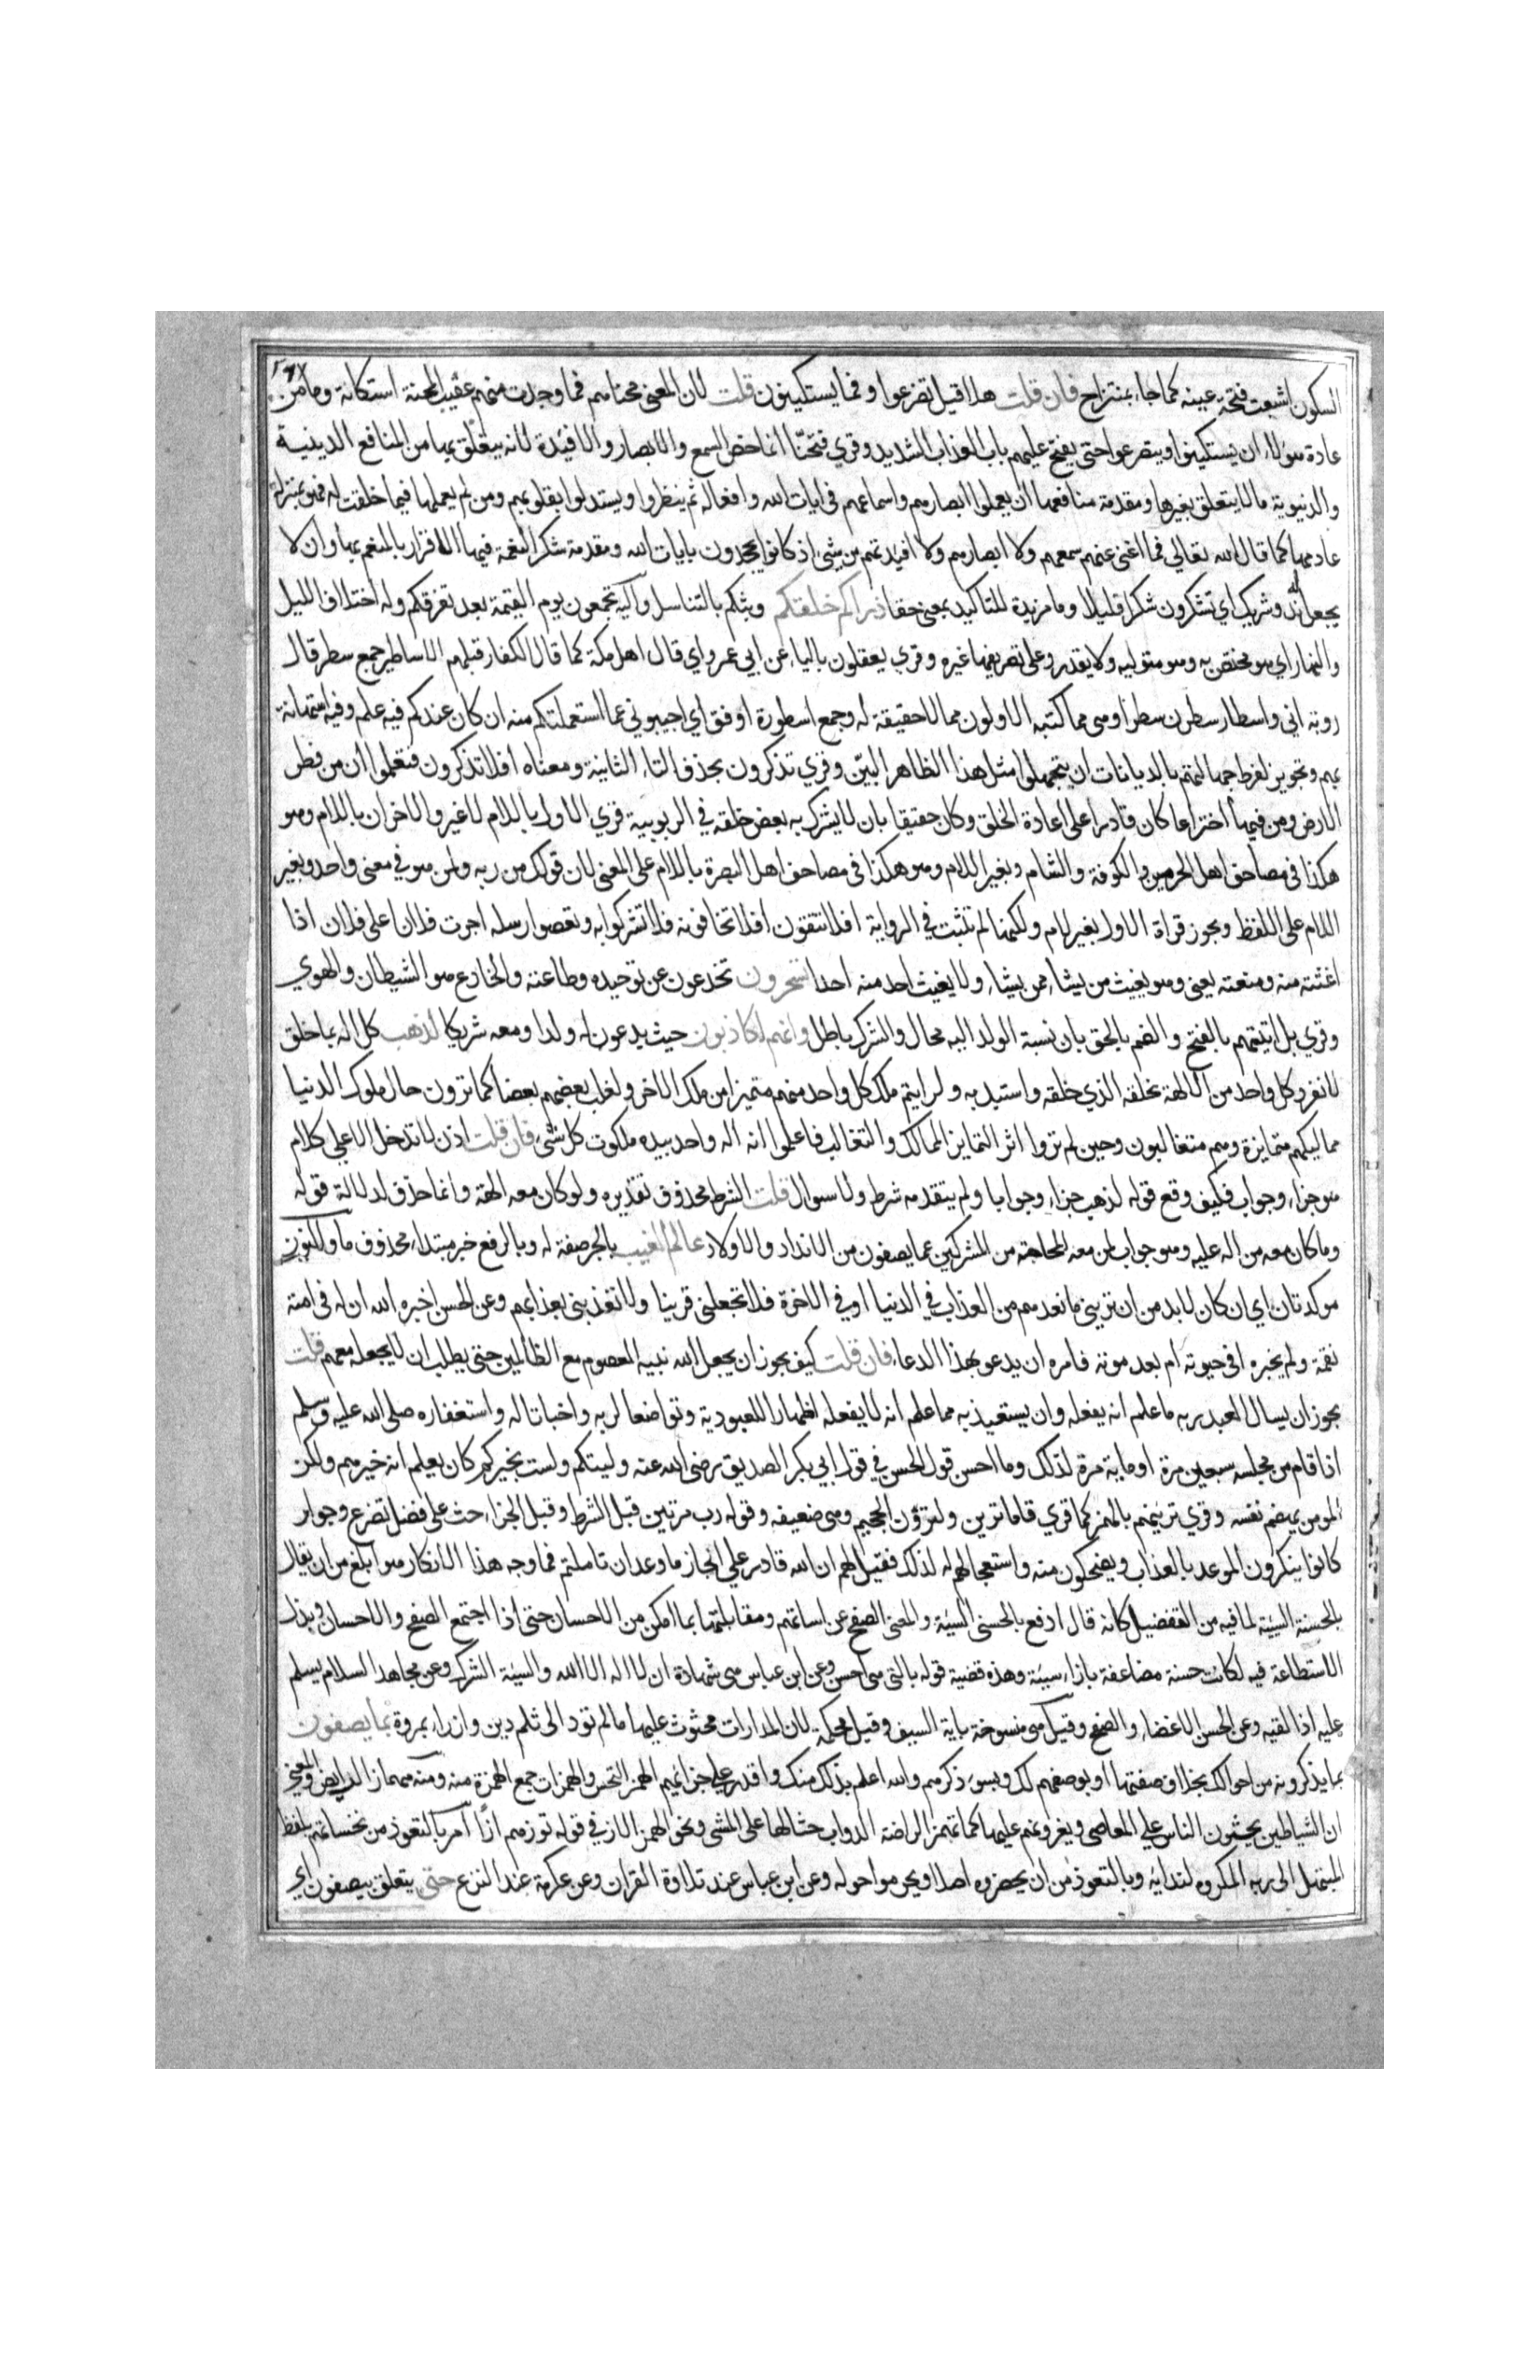 السكون اشبعت فتحة عينه كما جاء بمنتزاح فان قلت هلا قيل تضرعوا وفما يستكينون قلت لان المعنى محناهم فما وجدت منهم عقيب المحنة استكانة وما من
عادة هولاء ان يستكينوا ويتضرعوا حتى يفتح عليهم باب العذاب الشديد وقري فتحنا انما خص السمع والابصار والافيدة لانه يتعلق بها من المنافع الدينية
والدنيوية مالا يتعلق بغيرها ومقدمة منافعها ان يعملوا ابصارهم واسماعهم في ايات الله وافعاله ثم ينظروا ويستدلوا بقلوبهم ومن لم يعملها فيما خلقت له فهو بمنزلة
عادمها كما قال الله تعالي فما اغنى عنهم سمعهم ولا ابصارهم ولا افيدتهم من شيء اذ كانوا يجحدون بايات الله ومقدمة شكر النعمة فيها الاقرار بالمنعم بها وان لا
يجعل له ند وشريك اي تشكرون شكرا قليلا وما مزيدة للتاكيد بمعنى حقا ذراكم خلقكم وبثكم بالتناسل واليه تجمعون يوم القيمة بعد تفرقكم وله اختلاف الليل
والنهار اي هو مختص به وهو متوليه ولا يقدر على تصريفهما غيره وقري يعقلون بالياء عن ابي عمرو اي قال اهل مكة كما قال الكفار قبلهم الاساطير جمع سطر قال
روبة اني واسطار سطرن سطرا وهي مما كتبه الاولون مما لا حقيقة له وجمع اسطورة اوفق اي اجيبوني عما استعملتكم منه ان كان عندكم فيه علم وفيه استهانة
بهم وتجويز لفرط جهالتهم بالديانات ان يتجهلوا مثل هذا الظاهر البين وقري تذكرون بحذف التاء الثانية ومعناه أفلا تذكرون فتعلموا أن من فطر
الارض ومن فيها اختراعا كان قادرا على اعادة الخلق وكان حقيقا بان لا يشرك به بعض خلقه في الربوبية قري الاول باللام لا غير والاخران باللام وهو
هكذا في مصاحف اهل الحرمين والكوفة والشام وبغير اللام وهو هكذا في مصاحف اهل البصرة باللام على المعنى لان قولك من ربه ولمن هو في معنى واحد وبغير
اللام على اللفظ ويجوز قراة الاول بغير لام ولكنها لم تثبت في الرواية افلا تتقون افلا تخافونه فلا تشركوا به وتعصوا رسله اجرت فلان على فلان اذا
اغثته منه ومنعته يعني وهو يغيث من يشاء ممن يشاء ولا يغيث احد منه احدا تسحرون تخدعون عن توحيده وطاعته والخادع هو الشيطان والهوي
وقري بل اتيتهم بالفتح والضم بالحق بان نسبة الولد اليه محال والشرك باطل وانهم لكاذبون حيث يدعون له ولدا ومعه شريكا لذهب كل اله بما خلق
لانفرد كل واحد من الالهة بخلقه الذي خلقه واستبد به ولرايتم ملك كل واحد منهم متميزا من ملك الاخر ولغلب بعضهم بعضا كما ترون حال ملوك الدنيا
مماليكهم متمايزة وهم متغالبون وحين لم تروا اثر التمايز الممالك والتغالب فاعلموا انه اله واحد بيده ملكوت كل شي فان قلت اذن لا تدخل الا على كلام
هو جزاء وجواب فكيف وقع قوله لذهب جزاء وجوابا ولم يتقدمه شرط ولا سوال قلت الشرط محذوف تقديره ولو كان معه الهة وانما حذف لدلالة قوله
وما كان معه من اله عليه وهو جواب لمن معه المحاجة من المشركين عما يصفون من الانداد والاولاد عالم الغيب بالجر صفة له وبالرفع خبر مبتداء محذوف ما والنون
موكدتان اي ان كان لا بد من ان تريني ما تعدهم من العذاب في الدنيا او في الاخرة فلا تجعلني قرينا ولا تعذبني بعذابهم وعن الحسن اخبره الله ان له في امته
نقمة ولم يخبره افي حيوته ام بعد موته فامره ان يدعو بهذا الدعاء فان قلت كيف يجوز ان يجعل الله نبيه المعصوم مع الظالمين حتى يطلب ان لا يجعله معهم قلت
يجوز ان يسال العبد ربه ما علم انه يفعله وان يستعيذ به مما علم انه لا يفعله اظهارا للعبودية وتواضعا لربه واخباتا له واستغفاره صلى الله عليه وسلم
اذا قام من مجلسه سبعين مرة او ماية مرة لذلك وما احسن قول الحسن في قول ابي بكر الصديق رضي الله عنه وليتكم ولست بخيركم كان يعلم انه خيرهم ولكن
المومن يهضم نفسه وقري ترئنهم بالهمز كما قري فاما ترئن ولترؤن الجحيم وهي ضعيفه وقوله رب مرتين قبل الشرط وقبل الجزاء حث على فضل تضرع وجوار
كانوا ينكرون الموعد بالعذاب ويضحكون منه واستعجالهم له لذلك فقيل لهم ان الله قادر علي انجاز ما وعد ان تاملتم فما وجه هذا الانكار هو ابلغ من ان يقال
بالحسنة السيئة لما فيه من التفضيل كانه قال ادفع بالحسنى السيئة والمعنى الصفح عن اساءتهم ومقابلتها بما امكن من الاحسان حتى اذا اجتمع الصفح والاحسان وبذل
الاستطاعة فيه لكانت حسنة مضاعفة بازاء سيئة وهذه قضية قوله بالتي هي احسن وعن ابن عباس هي شهادة ان لا اله الا الله والسيئة الشرك وعن مجاهد السلام يسلم
عليه اذا لقيه وعن الحسن الاغضاء والصفح وقيل هي منسوخة باية السيف وقيل محكمة لان المدارات محثوث عليها ما لم تود الى ثلم دين وازراء بمروة بما يصفون
بما يذكرونه من احوالك بخلاف صفتها او بوصفهم لك وبسوء ذكرهم والله اعلم بذلك منك واقدر على جزائهم الهمز النخس والهمزات جمع الهمزة منه ومنه مهماز الرايض والمعنى
ان الشياطين يحثون الناس علي المعاصي ويغرونهم عليها كما تهمز الراضة الدواب حثا لها على المشي ونحو الهمز الاز في قوله توزهم ازا امر بالتعوذ من نخساتهم بلفظ
المبتهل الى ربه المكرر لندائه وبالتعوذ من ان يحضروه اصلا ويحوموا حوله وعن ابن عباس عند تلاوة القران وعن عكرمة عند النزع حتى يتعلق بيصفون اي